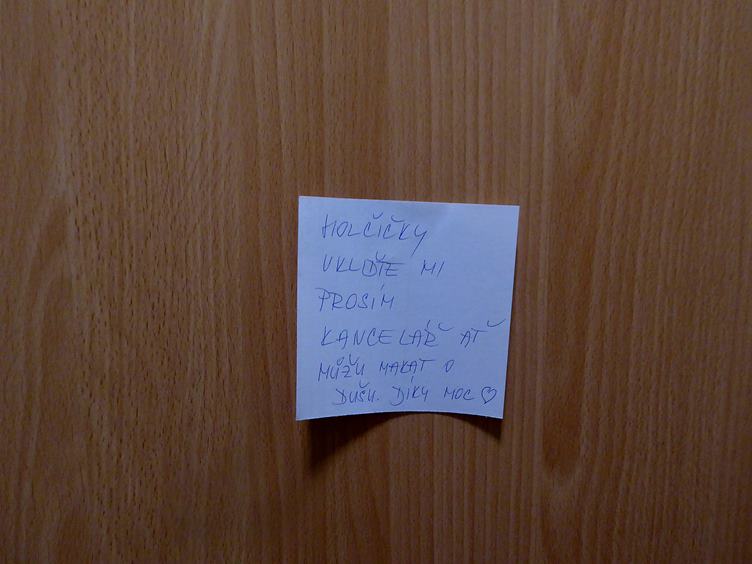 HOLČIČKY
UKLIĎTE MI
PROSÍM
KANCELÁŘ AŤ
MŮŽU MAKAT O
DUŠU. DÍKY MOC ♡